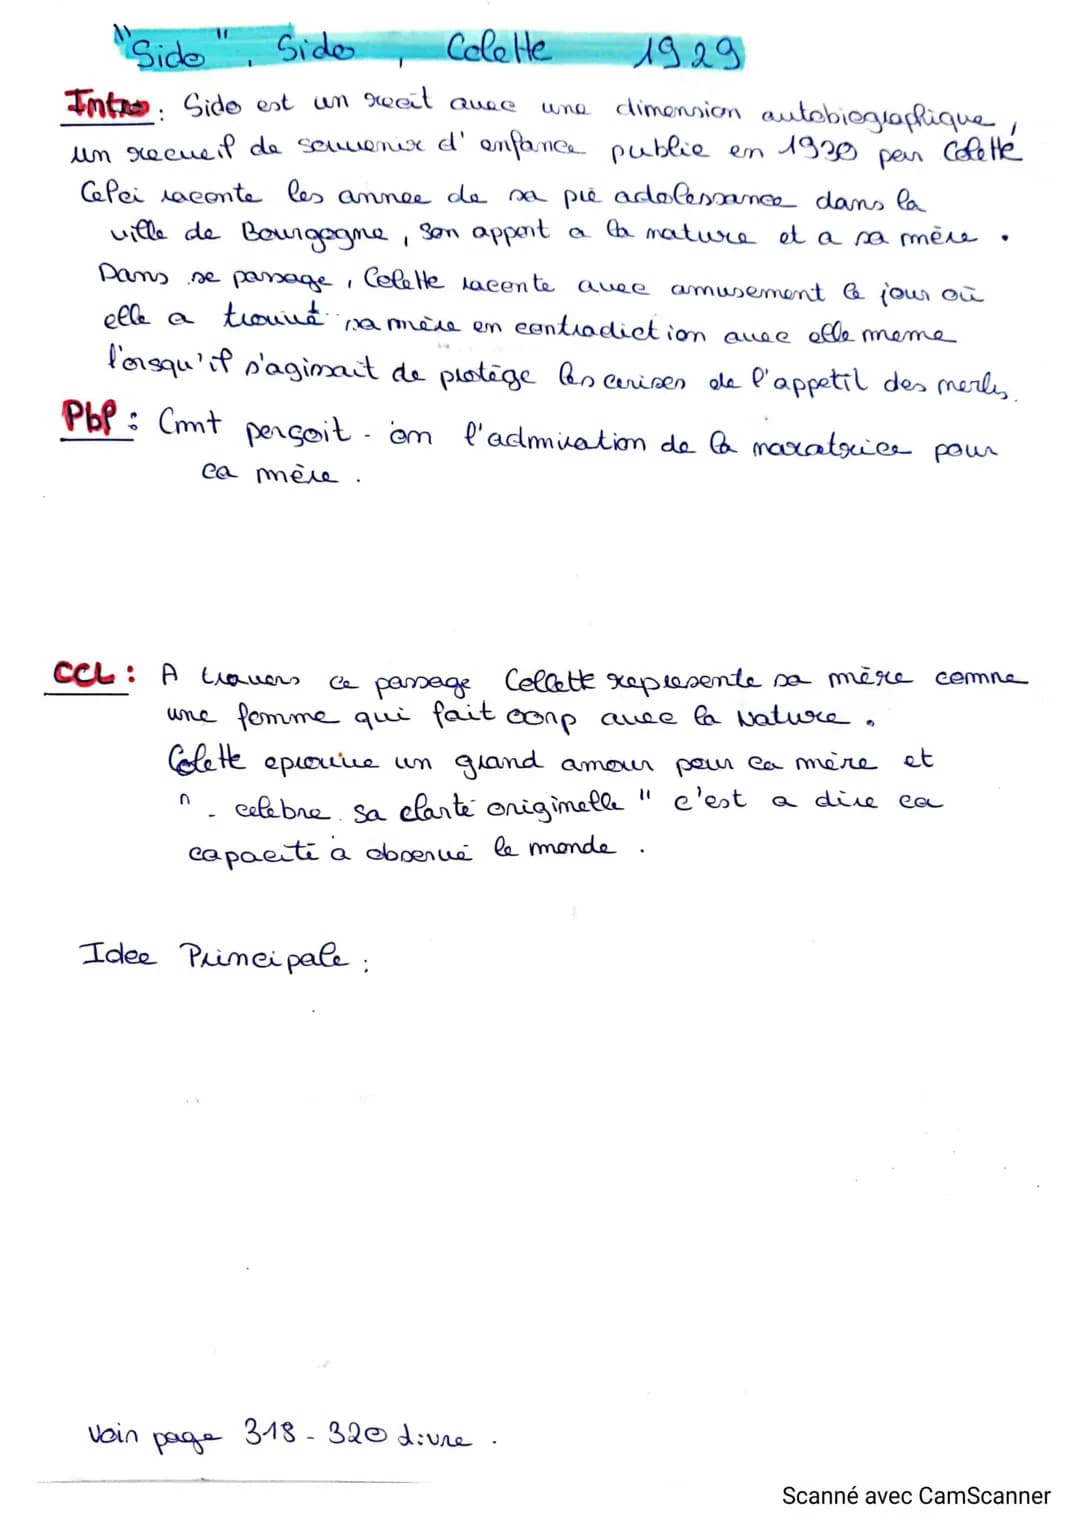 "Sido", Sido, Colette 1929
Intro : Sido est un recit avec une dimension autobiographique,
un recueil de souvenir d'enfance publie en 1930 par Colette
Celci raconte les annee de sa pré adolessance dans la
ville de Bourgogne, son apport a la nature et a sa mère.
Dans se passage, Colette raconte avec amusement le jour où
elle a trouvé sa mère en contradiction avec elle meme
l'orsqu'il s'agissait de protège les cerises de l'appetil des merles.
Pbl : Cmnt perçoit-on l'admiration de la naratrice pour
ca mère.
CCL : A travers ce passage Collette represente sa mère comne
une femme qui fait corp avec la Nature.
Colette eprouve un grand amour pour ca mère et
" celebre sa clarté originelle " c'est a dire ca
capacité a observé le monde.
Idee Principale :
Voir page 318-320 Livre.
Scanné avec CamScanner